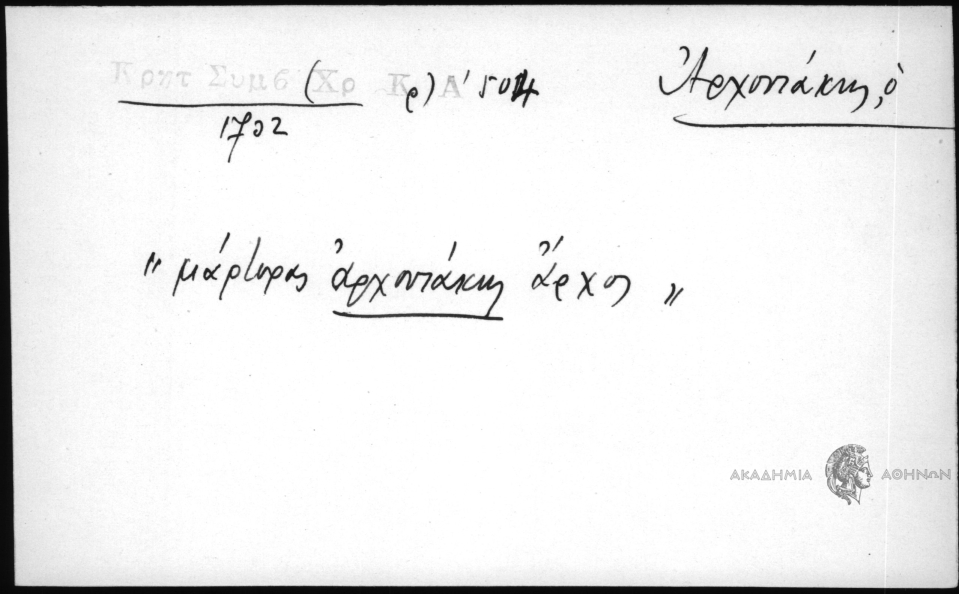 Κρητ Συμβ (Χρ Κρ) Α' 504
Ἀρχοντάκης, ὁ
1702
" μάρτυρας ἀρχοντάκης ἄρχος "
ΑΚΑΔΗΜΙΑ ΑΘΗΝΩΝ